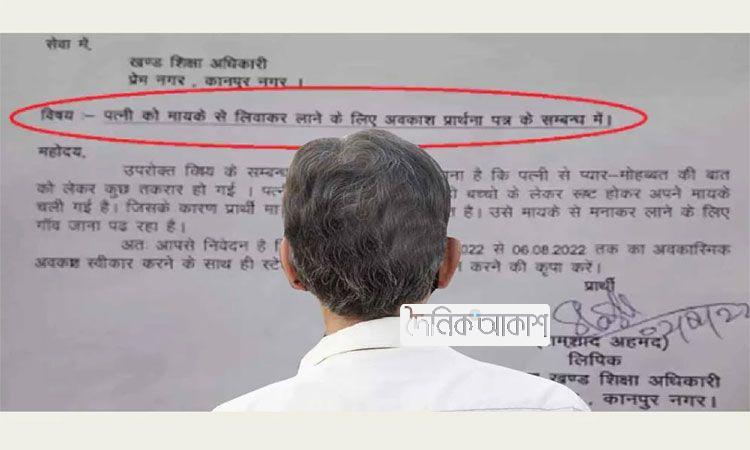 सेवा में,
खण्ड शिक्षा अधिकारी
प्रेम नगर, कानपुर नगर ।
विषय :- पत्नी को मायके से लिवाकर लाने के लिए अवकाश प्रार्थना पत्र के सम्बन्ध में।
महोदय,
उपरोक्त विषय के सम्बन्ध ना है कि पत्नी से प्यार-मोहब्बत की बात
को लेकर कुछ तकरार हो गई । पत्नी बच्चो के लेकर रूष्ट होकर अपने मायके
चली गई है। जिसके कारण प्रार्थी मा त है। उसे मायके से मनाकर लाने के लिए
गॉव जाना पढ रहा है।
अतः आपसे निवेदन है कि 2022 से 06.08.2022 तक का अवकास्मिक
अवकाश स्वीकार करने के साथ ही स्टे करने की कृपा करें।
प्रार्थी
দৈনিক আকাশ
मशाद अहमद)
लिपिक
खण्ड शिक्षा अधिकारी
, कानपुर नगर।